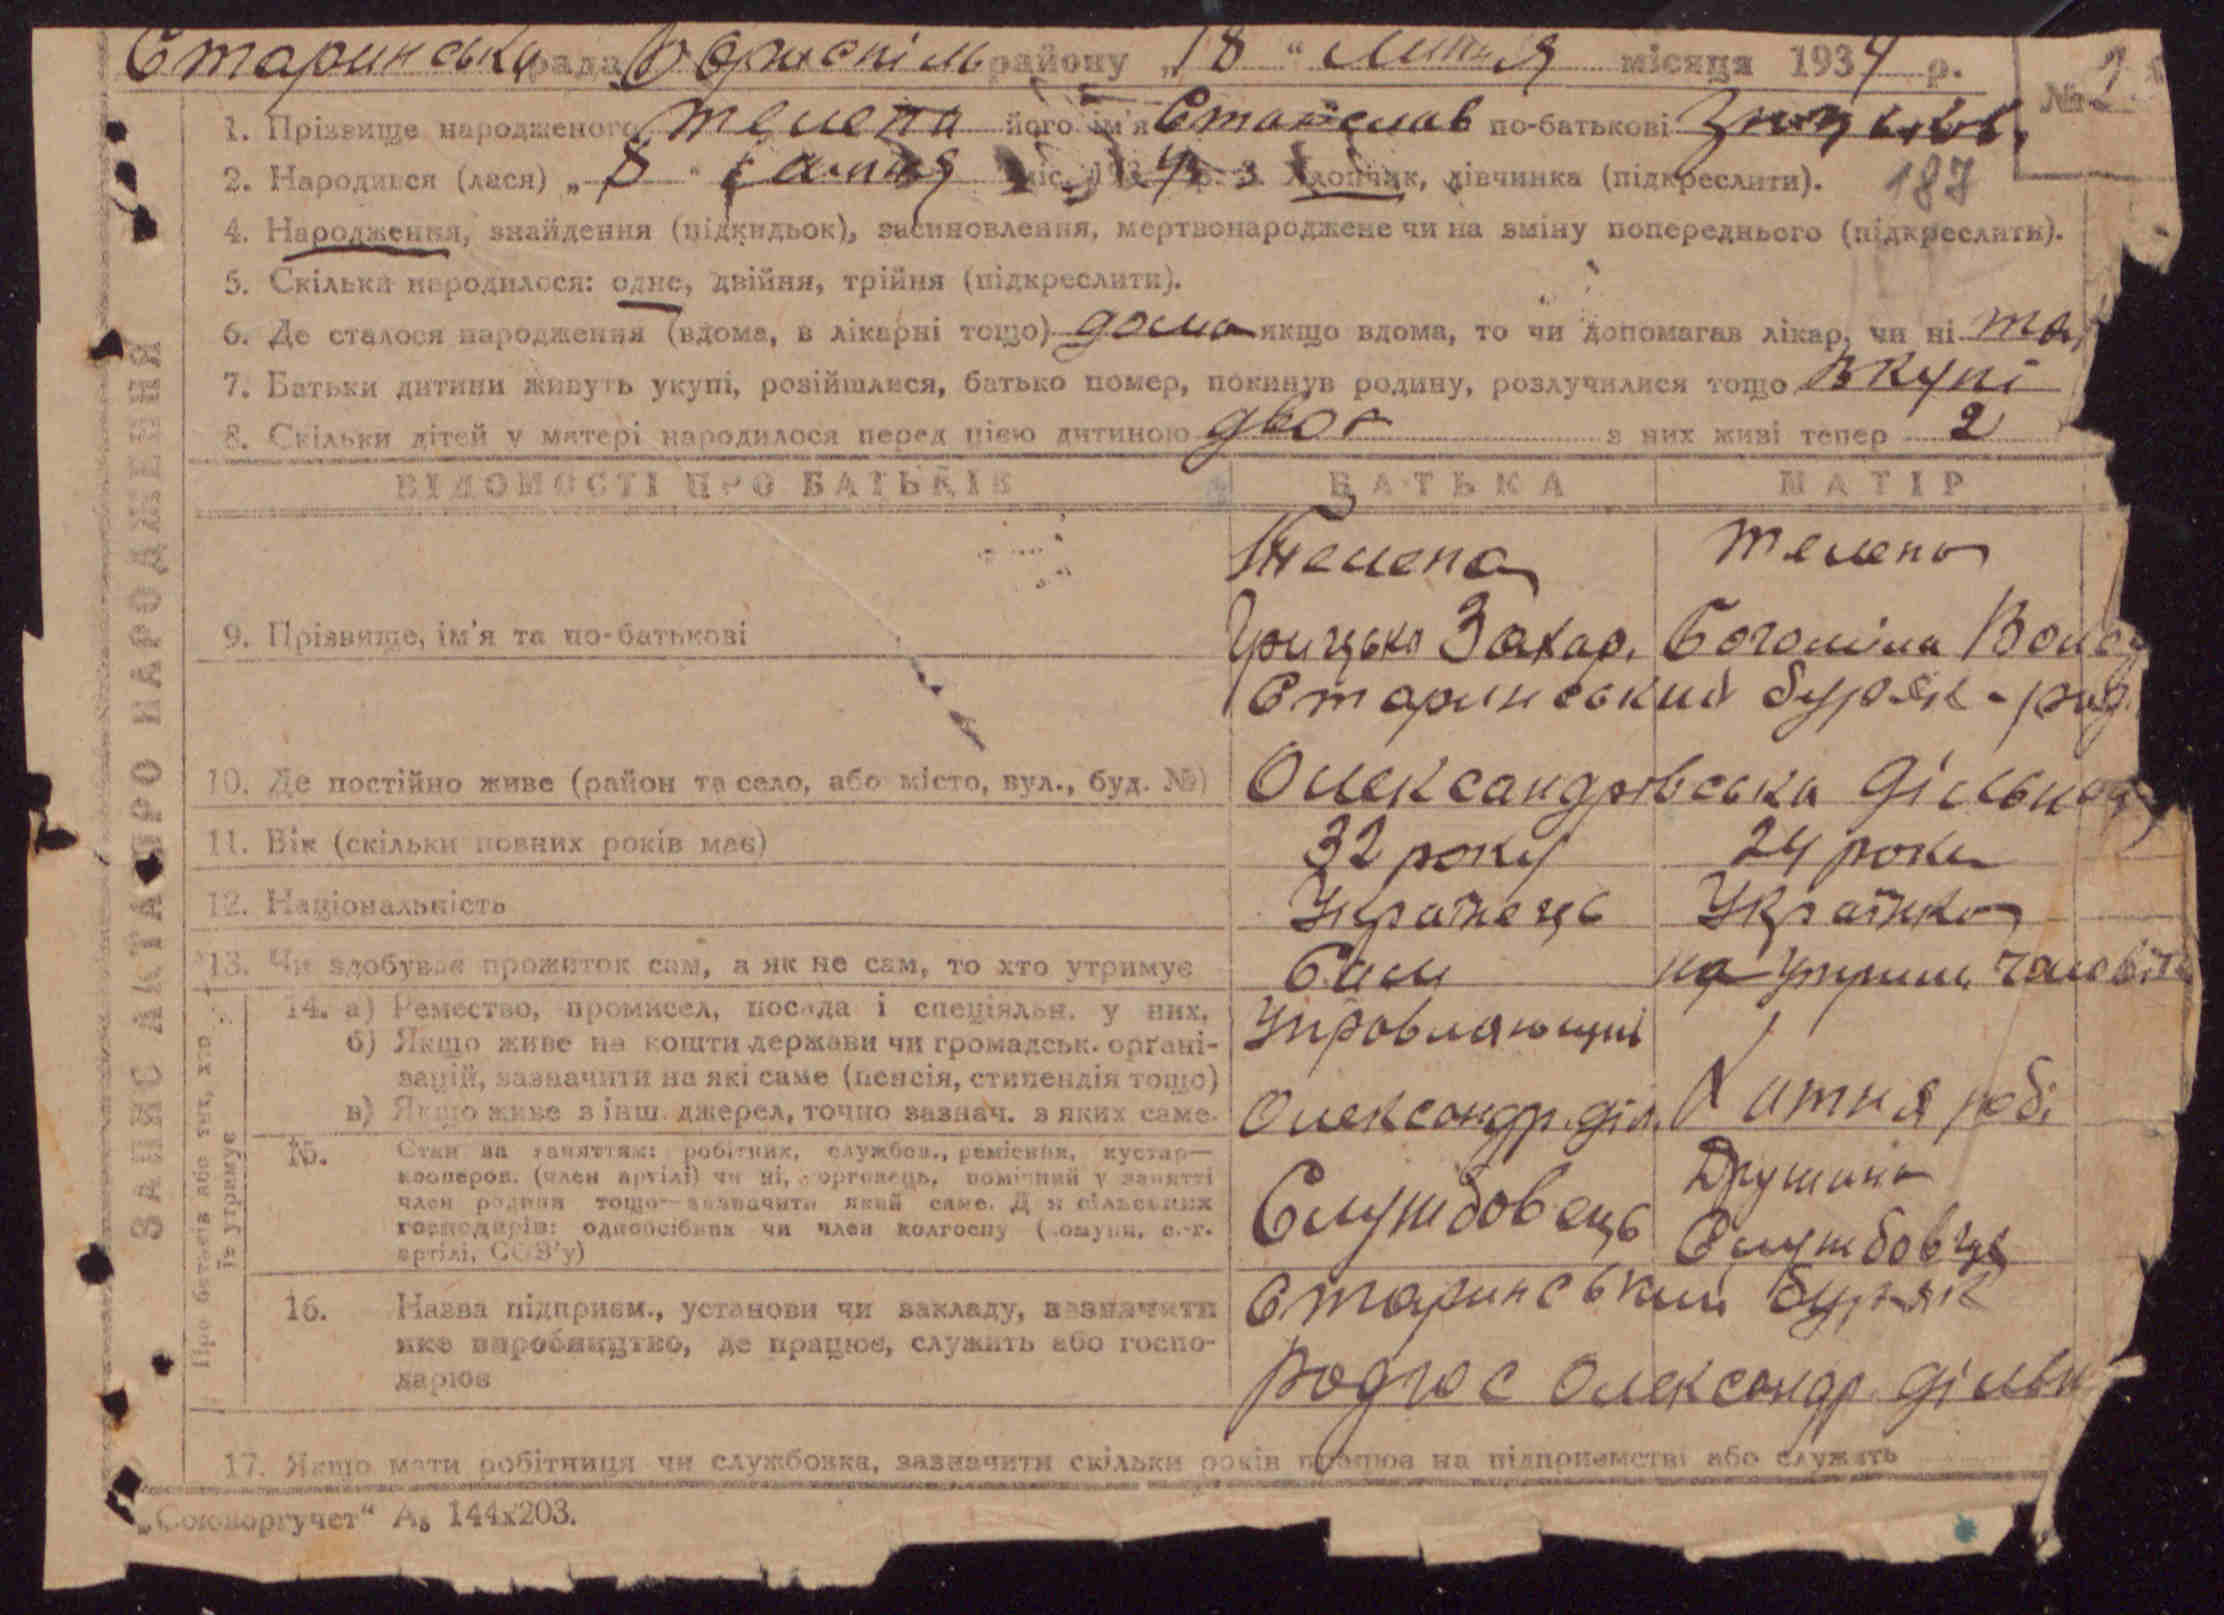 Старинська рада Бориспіль району „18“ Липня місяця 1934 р.
№ 1
1. Прізвище народженого Телепа його ім'я Станіслав по-батькові
2. Народився (лася) „8“ міс. 1934 р. 3. Хлопчик, дівчинка (підкреслити). 187
4. Народження, знайдення (підкидьок), засиновлення, мертвонароджене чи на зміну попереднього (підкреслити).
5. Скільки народилося: одне, двійня, трійня (підкреслити).
6. Де сталося народження (вдома, в лікарні тощо) дома якщо вдома, то чи допомагав лікар, чи ні
7. Батьки дитини живуть укупі, розійшлися, батько помер, покинув родину, розлучилися тощо вкупі
8. Скільки дітей у матері народилося перед цією дитиною двоє з них живі тепер 2
ВІДОМОСТІ ПРО БАТЬКІВ БАТЬКА МАТІР
Телепа Телепа
9. Прізвище, ім'я та по-батькові Грицько Захар.
Старинський буряк-рад.
10. Де постійно живе (район та село, або місто, вул., буд. №) Олександровська
11. Вік (скільки повних років має) 32 року 24 роки
12. Національність Українець Українка
13. Чи здобуває прожиток сам, а як не сам, то хто утримує Сам на утрим. чоловіка
14. а) Ремество, промисел, посада і спеціяльн. у них. Управляющий
б) Якщо живе на кошти держави чи громадськ. органі-
зацій, зазначити на які саме (пенсія, стипендія тощо)
в) Якщо живе з інш. джерел, точно зазнач. з яких саме. Олександр. діл. Хатня робі
15. Стан за заняттям: робітник, службов., ремісник, кустар—
кооперов. (член артілі) чи ні, торговець, помічний у занятті
член родини тощо—зазначити який саме. Для сільських
господарів: одноосібник чи член колгоспу (комуни, с.-г.
артілі, СОЗ'у)
Службовець Дружина
Службовця
16. Назва підприєм., установи чи закладу, зазначити
яке виробництво, де працює, служить або госпо-
дарює
Старинський буряк
Радгос Олександр. дільн
17. Якщо мати робітниця чи службовка, зазначити скільки років працює на підприємстві або служить
„Союзоргучет“ А₅ 144х203.
ЗАПИС АКТА ПРО НАРОДЖЕННЯ
Про батьків або тих, хто
їх утримує